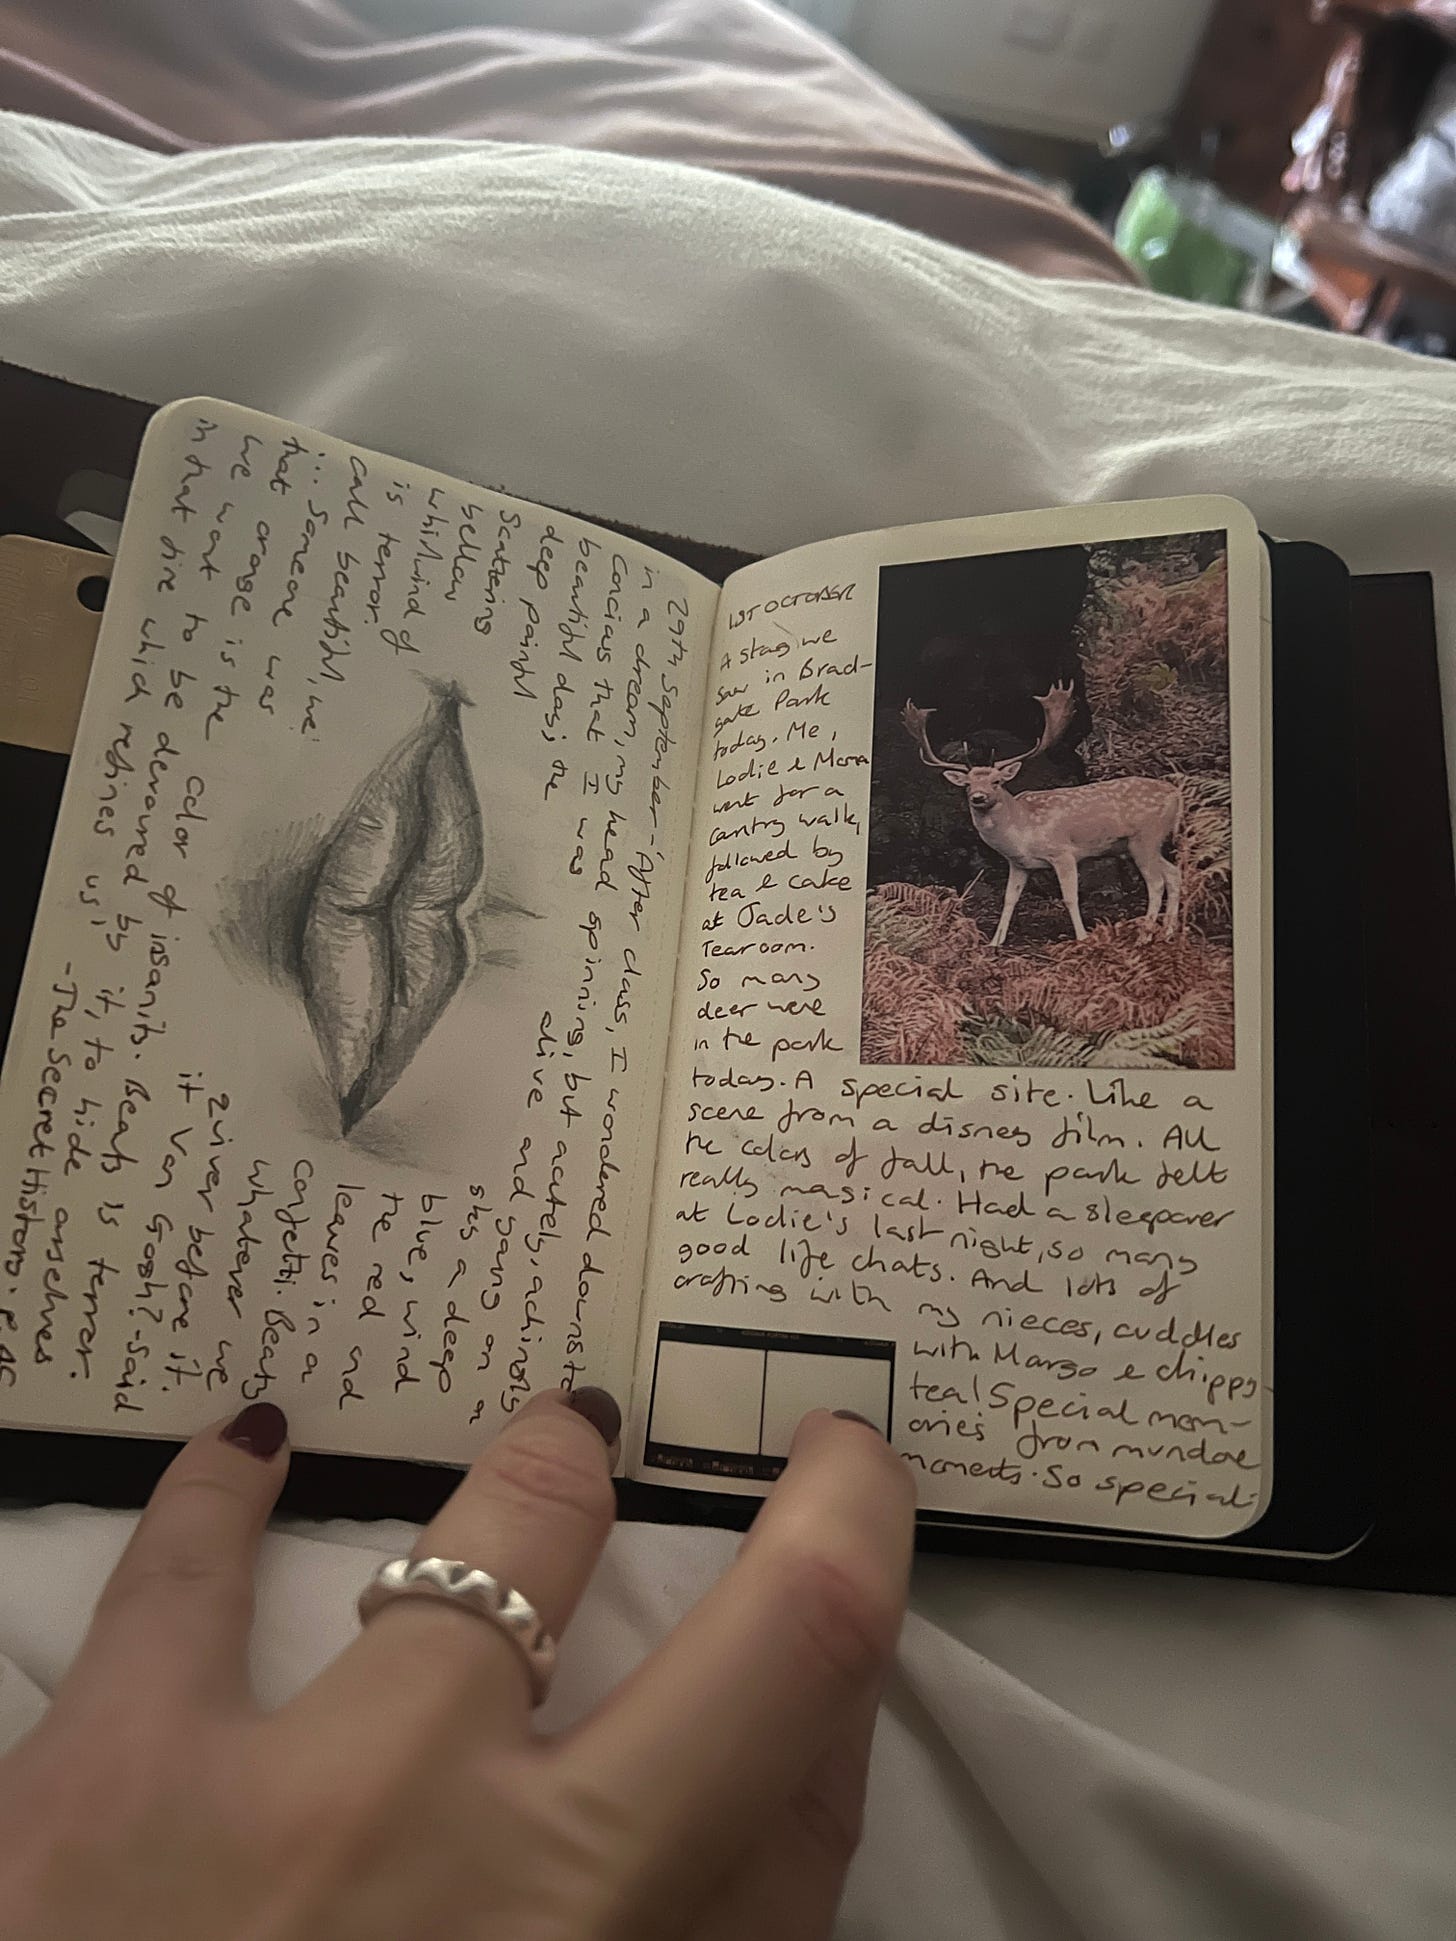 29th September - 'After class, I wondered downsta
in a dream, my head spinning, but acutely, achingly
concious that I was alive and young on a
beautiful day; the sky a deep
deep painful blue, wind
scattering the red and
yellow leaves in a
whirlwind of confetti. Beauty
is terror. Whatever we
call beautiful, we quiver before it.
'... Someone was it Van Gogh? - said
that orange is the color of insanity. Beauty is terror.
we want to be devoured by it, to hide ourselves
in that fire which refines us.' - The Secret History. P.
1ST OCTOBER
A stag we
saw in Brad-
gate Park
today. Me,
Lodie & Mama
went for a
country walk,
followed by
tea & cake
at Jade's
Tearoom.
So many
deer were
in the park
today. A special site. Like a
scene from a disney film. All
the colors of fall, the park felt
really magical. Had a sleepover
at Lodie's last night, so many
good life chats. And lots of
crafting with my nieces, cuddles
with Margo & chippy
tea! Special mem-
ories from mundae
moments. So special.